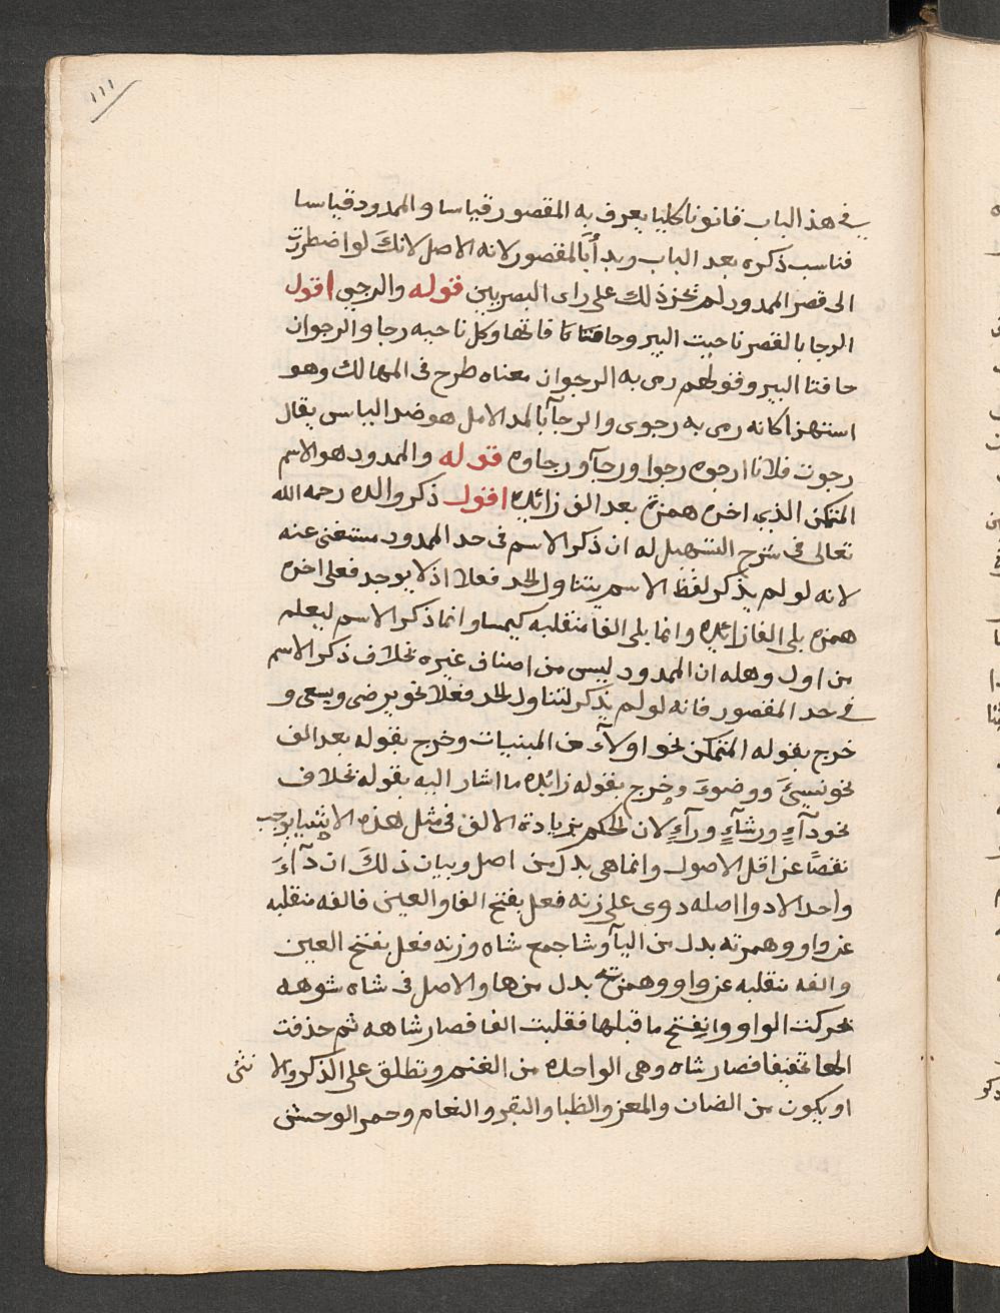 ١١١
في هذ الباب قانونا كليا يعرف به المقصور قياسا والممدود قياسا
فناسب ذكره بعد الباب وبدأ بالمقصور لانه الاصل لانك لو اضطررت
الى قصر الممدود لم تخرذلك على راى البصريين قوله والرجي اقول
الرجا بالقصر ناحيت البير وحافتا كا فاتها وكل ناحيه رجا والرجوان
حافتا البير وقولهم رمى به الرجوان معناه طرح فى المهالك وهو
استهزا كانه رمى به رجوى والرجآ بالمد الامل هو ضد الياس يقال
رجوت فلانا ارجوه رجوا ورجآ ورجاوه قوله والممدود هو الاسم
المتمكن الذي اخره همزة بعد الف زائده اقول ذكر والده رحمه الله
تعالى فى شرح التسهيل له ان ذكر الاسم فى حد الممدود مستغنى عنه
لانه لو لم يذكر لفظ الاسم يتناول الحد فعلا اذ لا يوجد فعل اخره
همزه يلى الفا زائده وانما يلى الفا منقلبه كيمسا وانما ذكر الاسم ليعلم
من اول وهله ان الممدود ليس من اصناف غيره بخلاف ذكر الاسم
في حد المقصور فانه لو لم يذكر لتناول الحد فعلا نحو يرضى ويسعى و
خرج بقوله المتمكن نحو اولآء من المبنيات وخرج بقوله بعد الف
نحو نسيئ ووضوء وخرج بقوله زائده ما اشار اليه بقوله بخلاف
نحو دآءٍ ورشآءٍ ورآءٍ لان الحكم بزيادة الالف فى مثل هذه الاشيا يوجب
نقصًا عن اقل الاصول وانما هى بدل من اصل وبيان ذلك ان دآء
واحد الادوا اصله دوى على زنه فعل بفتح الفا والعين فالفه منقلبه
عن واو وهمزته بدل من اليآ وشا جمع شاه وزنه فعل بفتح العين
والفه منقلبه عن واو وهمزته بدل من ها والاصل فى شاه شوهه
تحركت الواو وانفتح ما قبلها فقلبت الفا فصار شاهه ثم حذفت
الها تخفيفا فصار شاه وهى الواحده من الغنم وتطلق على الذكر والا نثى
او يكون من الضان والمعز والظبا والبقر والنعام وحمر الوحش